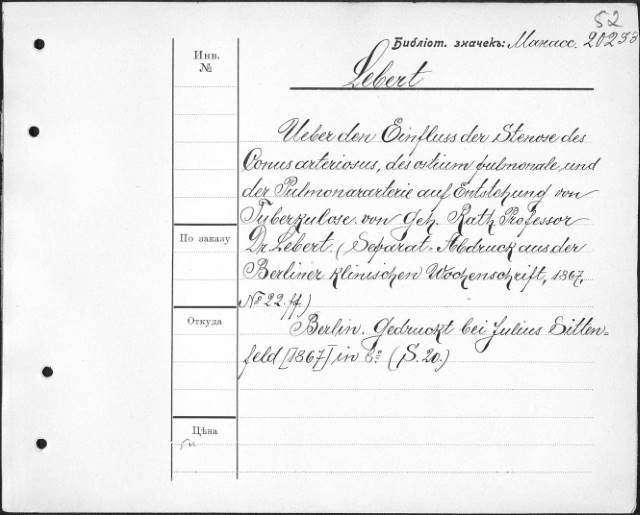 52
Библіот. значекъ: Манасс. 20233
Инв.
№
Lebert
Ueber den Einfluss der Stenose des
Conus arteriosus, des ostium pulmonale und
der Pulmonararterie auf Entstehung von
Tuberkulose. von Geh. Rath Professor
По заказу
Dr. Lebert. (Separat-Abdruck aus der
Berliner klinischen Wochenschrift, 1867,
№ 22. ff.)
Откуда
Berlin. Gedruckt bei Julius Sitten-
feld [1867] in 8º (S. 20.)
Цѣна